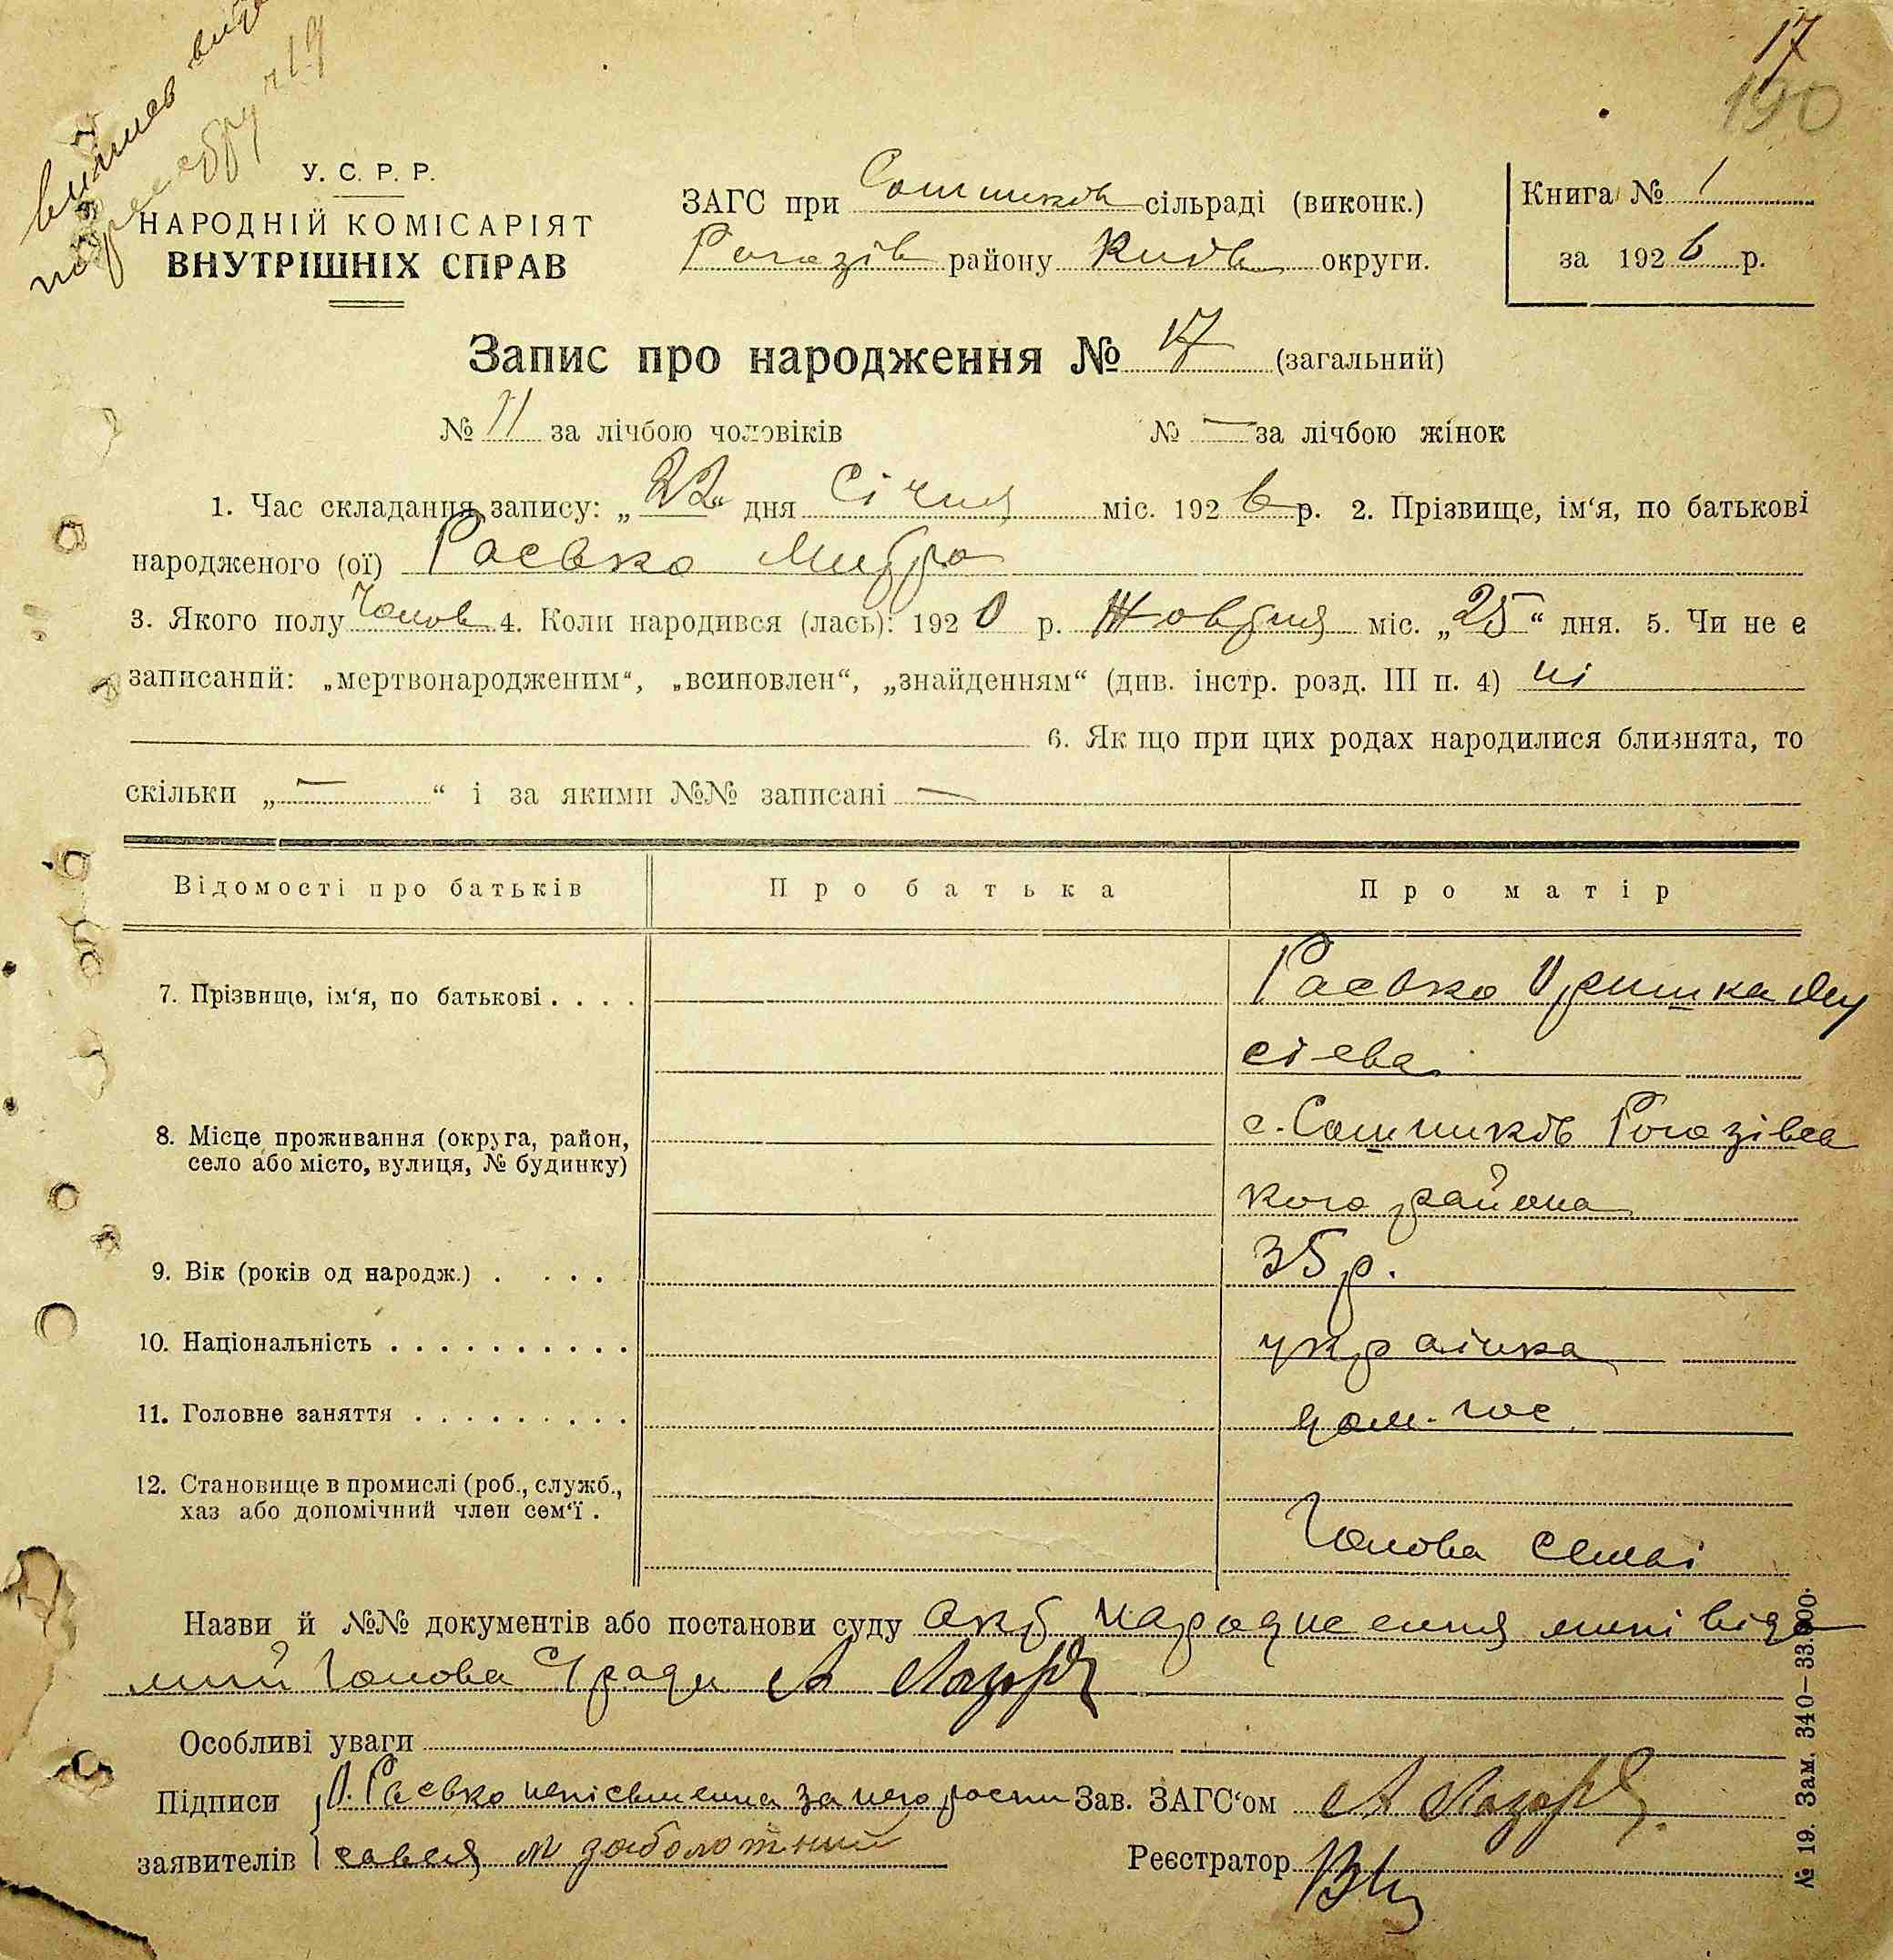 17
190
У. С. Р. Р.
НАРОДНІЙ КОМІСАРІЯТ
ВНУТРІШНІХ СПРАВ
ЗАГС при Сошників сільраді (виконк.)
Рогазів району Київ округи.
Книга № 1
за 1926 р.
Запис про народження № 17 (загальний)
№ 11 за лічбою чоловіків № — за лічбою жінок
1. Час складання запису: „22“ дня Січня міс. 1926 р. 2. Прізвище, ім‘я, по батькові
народженого (ої) Расевко
3. Якого полу Чолов 4. Коли народився (лась): 1920 р. Жовтня міс. „25“ дня. 5. Чи не є
записаний: „мертвонародженим“, „всиновлен“, „знайденням“ (див. інстр. розд. III п. 4) ні
6. Як що при цих родах народилися близнята, то
скільки „—“ і за якими №№ записані —
Відомості про батьків Про батька Про матір
7. Прізвище, ім‘я, по батькові . . . . Расевко Оришка
сієва
8. Місце проживання (округа, район, с. Сошників Рогазівсь
село або місто, вулиця, № будинку)
кого района
9. Вік (років од народж.) . . . . . 35 р.
10. Національність . . . . . . . . . . українка
11. Головне заняття . . . . . . . . . дом. гос
12. Становище в промислі (роб., служб.,
хаз або допомічний член сем‘ї .
Голова семьі
Назви й №№ документів або постанови суду акт народження мині відо
мий Голова С/ради А
Особливі уваги
Підписи О. Расевко непісьменна за него роспи Зав. ЗАГС‘ом А
заявителів савься М заболотний Реєстратор
№ 19. Зам. 340—33.000.